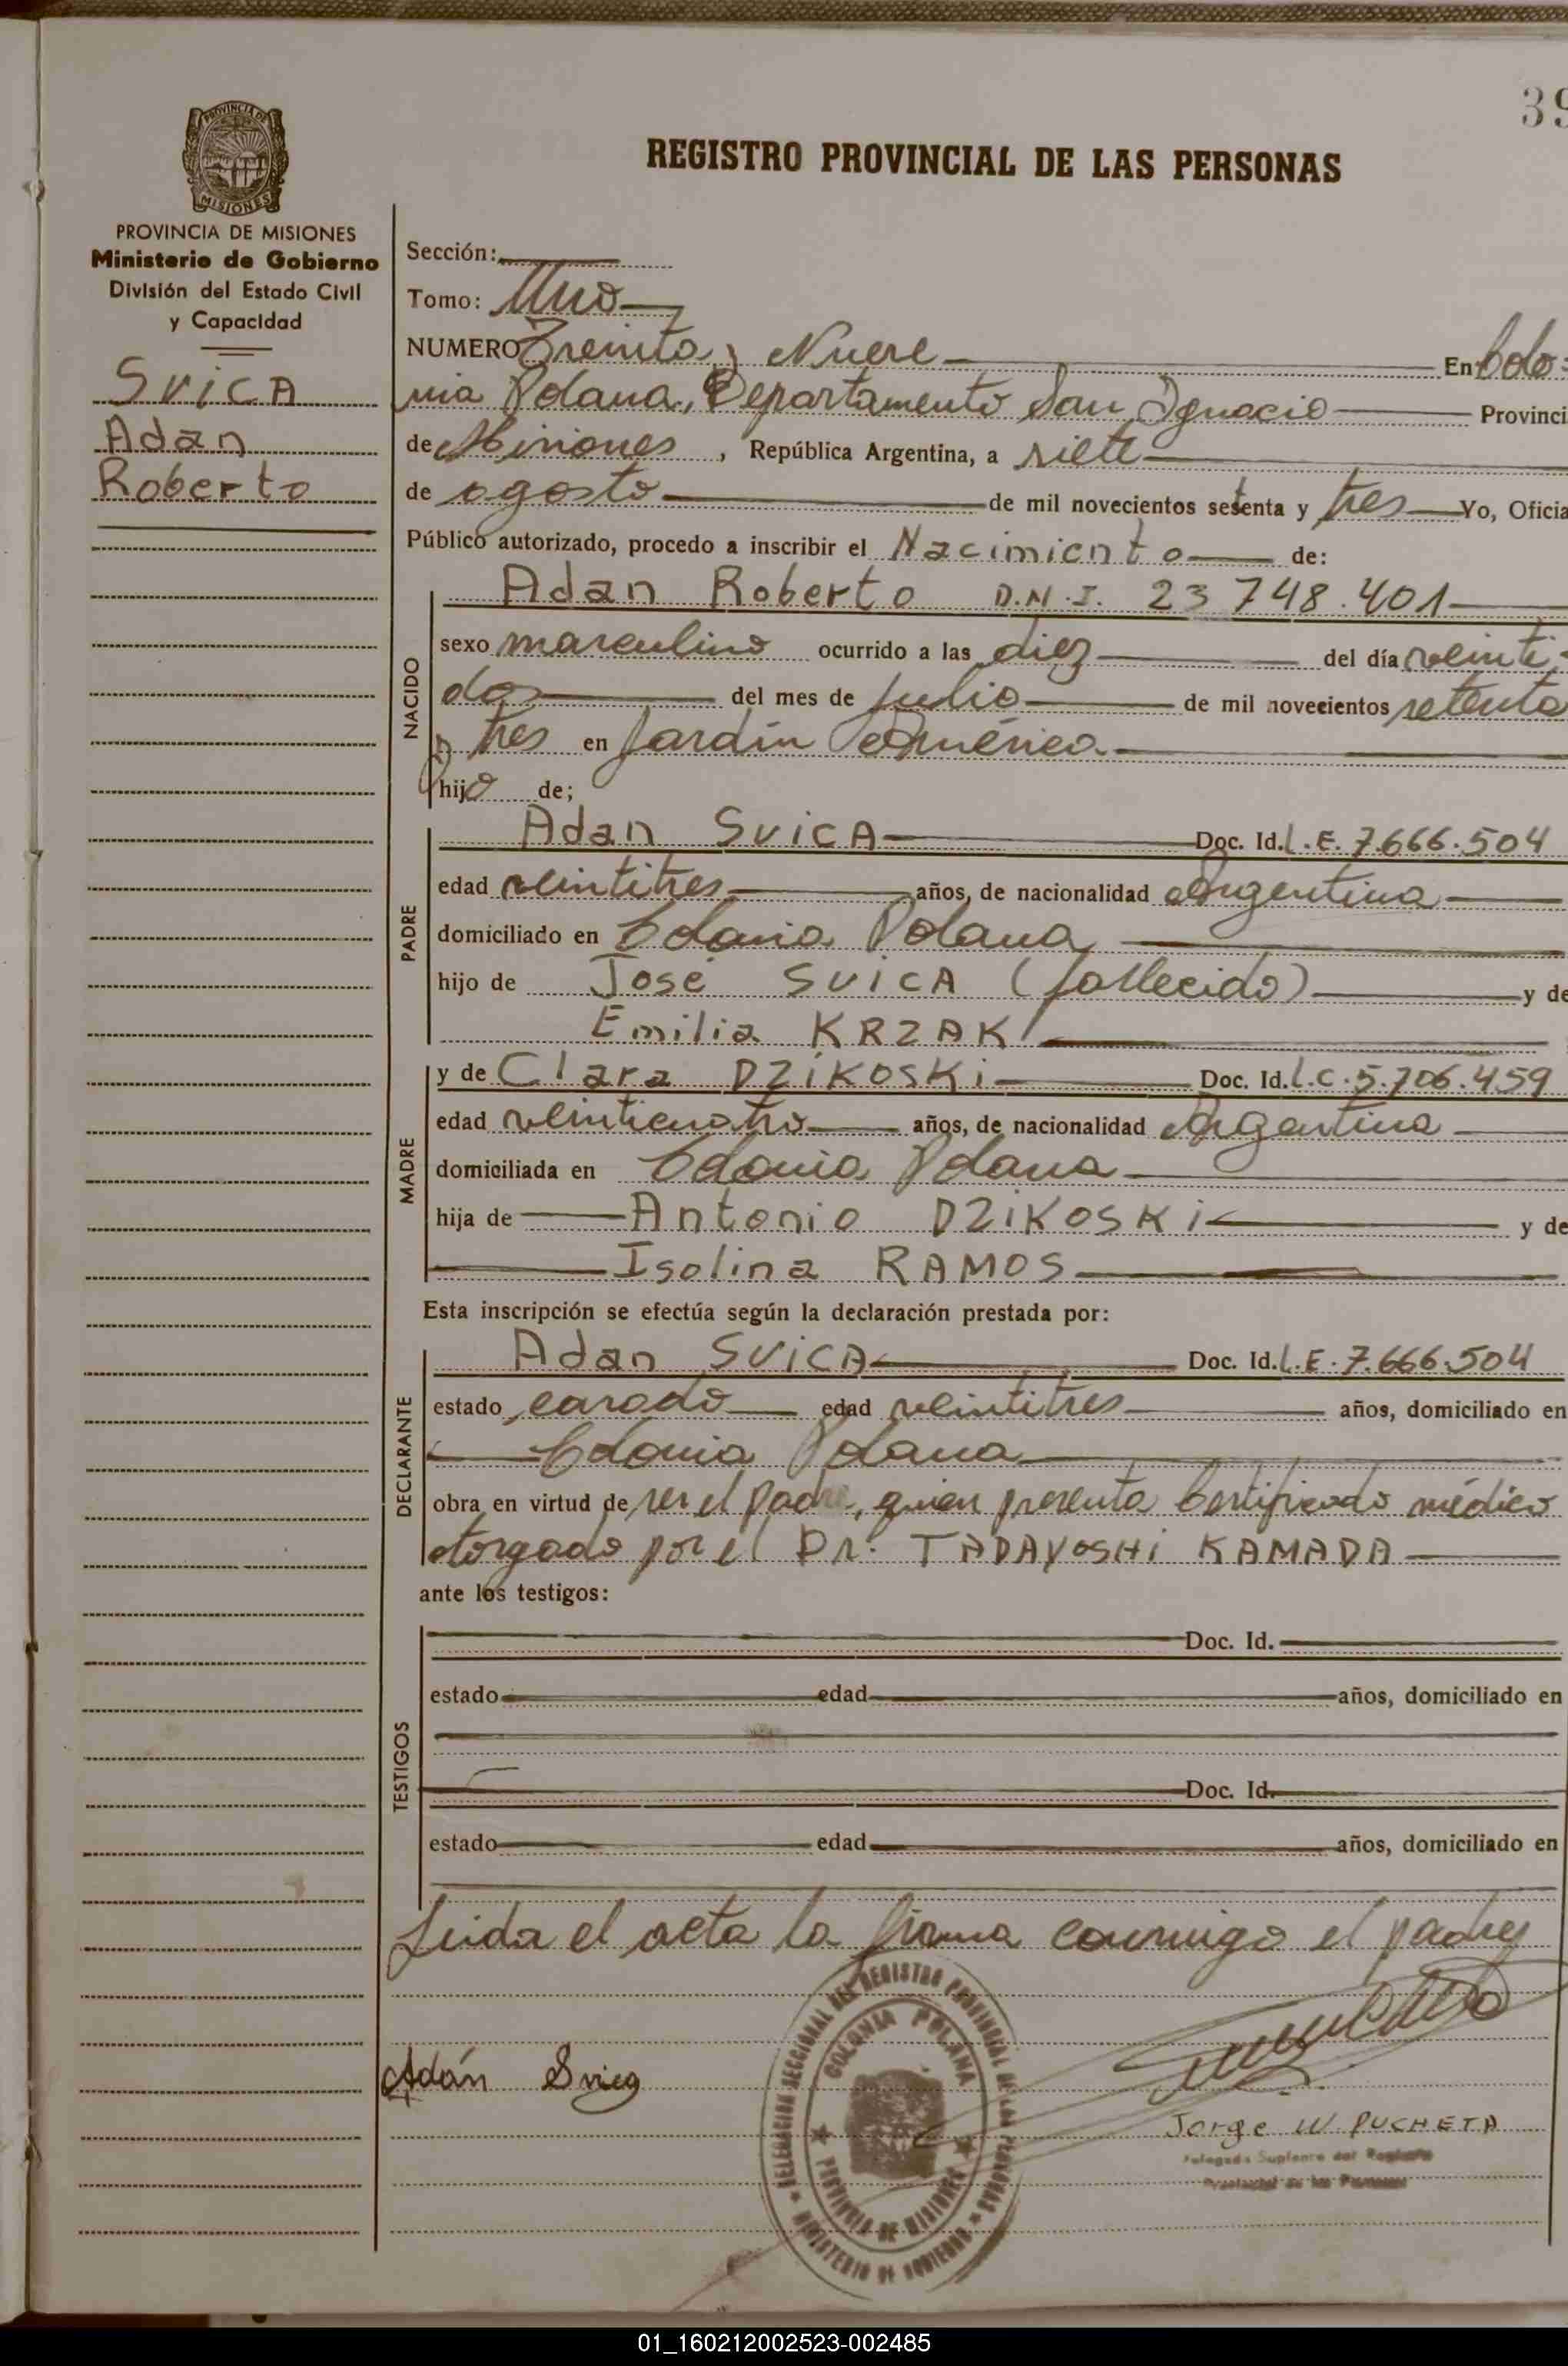 39
REGISTRO PROVINCIAL DE LAS PERSONAS
PROVINCIA DE MISIONES
PROVINCIA DE MISIONES
Ministerio de Gobierno
División del Estado Civil
y Capacidad
SVICA
Adan
Roberto
Sección:
Tomo: Uno
NUMERO Treinta y Nueve En Colo=
nia Polana, Departamento San Ignacio Provinci
de Misiones, República Argentina, a siete
de agosto de mil novecientos setenta y tres Yo, Oficia
Público autorizado, procedo a inscribir el Nacimiento de:
NACIDO
Adan Roberto D.N.I. 23 748.401
sexo masculino ocurrido a las diez del día veinti-
dos del mes de julio de mil novecientos setenta
y tres en Jardín América
hijo de;
PADRE
Adan SVICA Doc. Id. L.E. 7.666.504
edad veintitres años, de nacionalidad Argentina
domiciliado en Colonia Polana
hijo de José SVICA (fallecido) y de
Emilia KRZAK
MADRE
y de Clara DZIKOSKi Doc. Id. L.C. 5.706.459
edad veinticuatro años, de nacionalidad Argentina
domiciliada en Colonia Polana
hija de Antonio DZIKOSKi y de
Isolina RAMOS
Esta inscripción se efectúa según la declaración prestada por:
DECLARANTE
Adan SVICA Doc. Id. L.E. 7.666.504
estado casado edad veintitres años, domiciliado en
Colonia Polana
obra en virtud de ser el padre, quien presenta Certificado médico
otorgado por el Dr. TADAYOSHi KAMADA
ante los testigos:
TESTIGOS
Doc. Id.
estado edad años, domiciliado en
Doc. Id.
estado edad años, domiciliado en
Leida el acta la firma conmigo el padre
Adán Svica
DELEGACION SECCIONAL DEL REGISTRO PROVINCIAL DE LAS PERSONAS
COLONIA POLANA
PROVINCIA DE MISIONES
MINISTERIO DE GOBIERNO
Jorge W. PUCHETA
Delegado Suplente del Registro
Provincial de las Personas
01_160212002523-002485